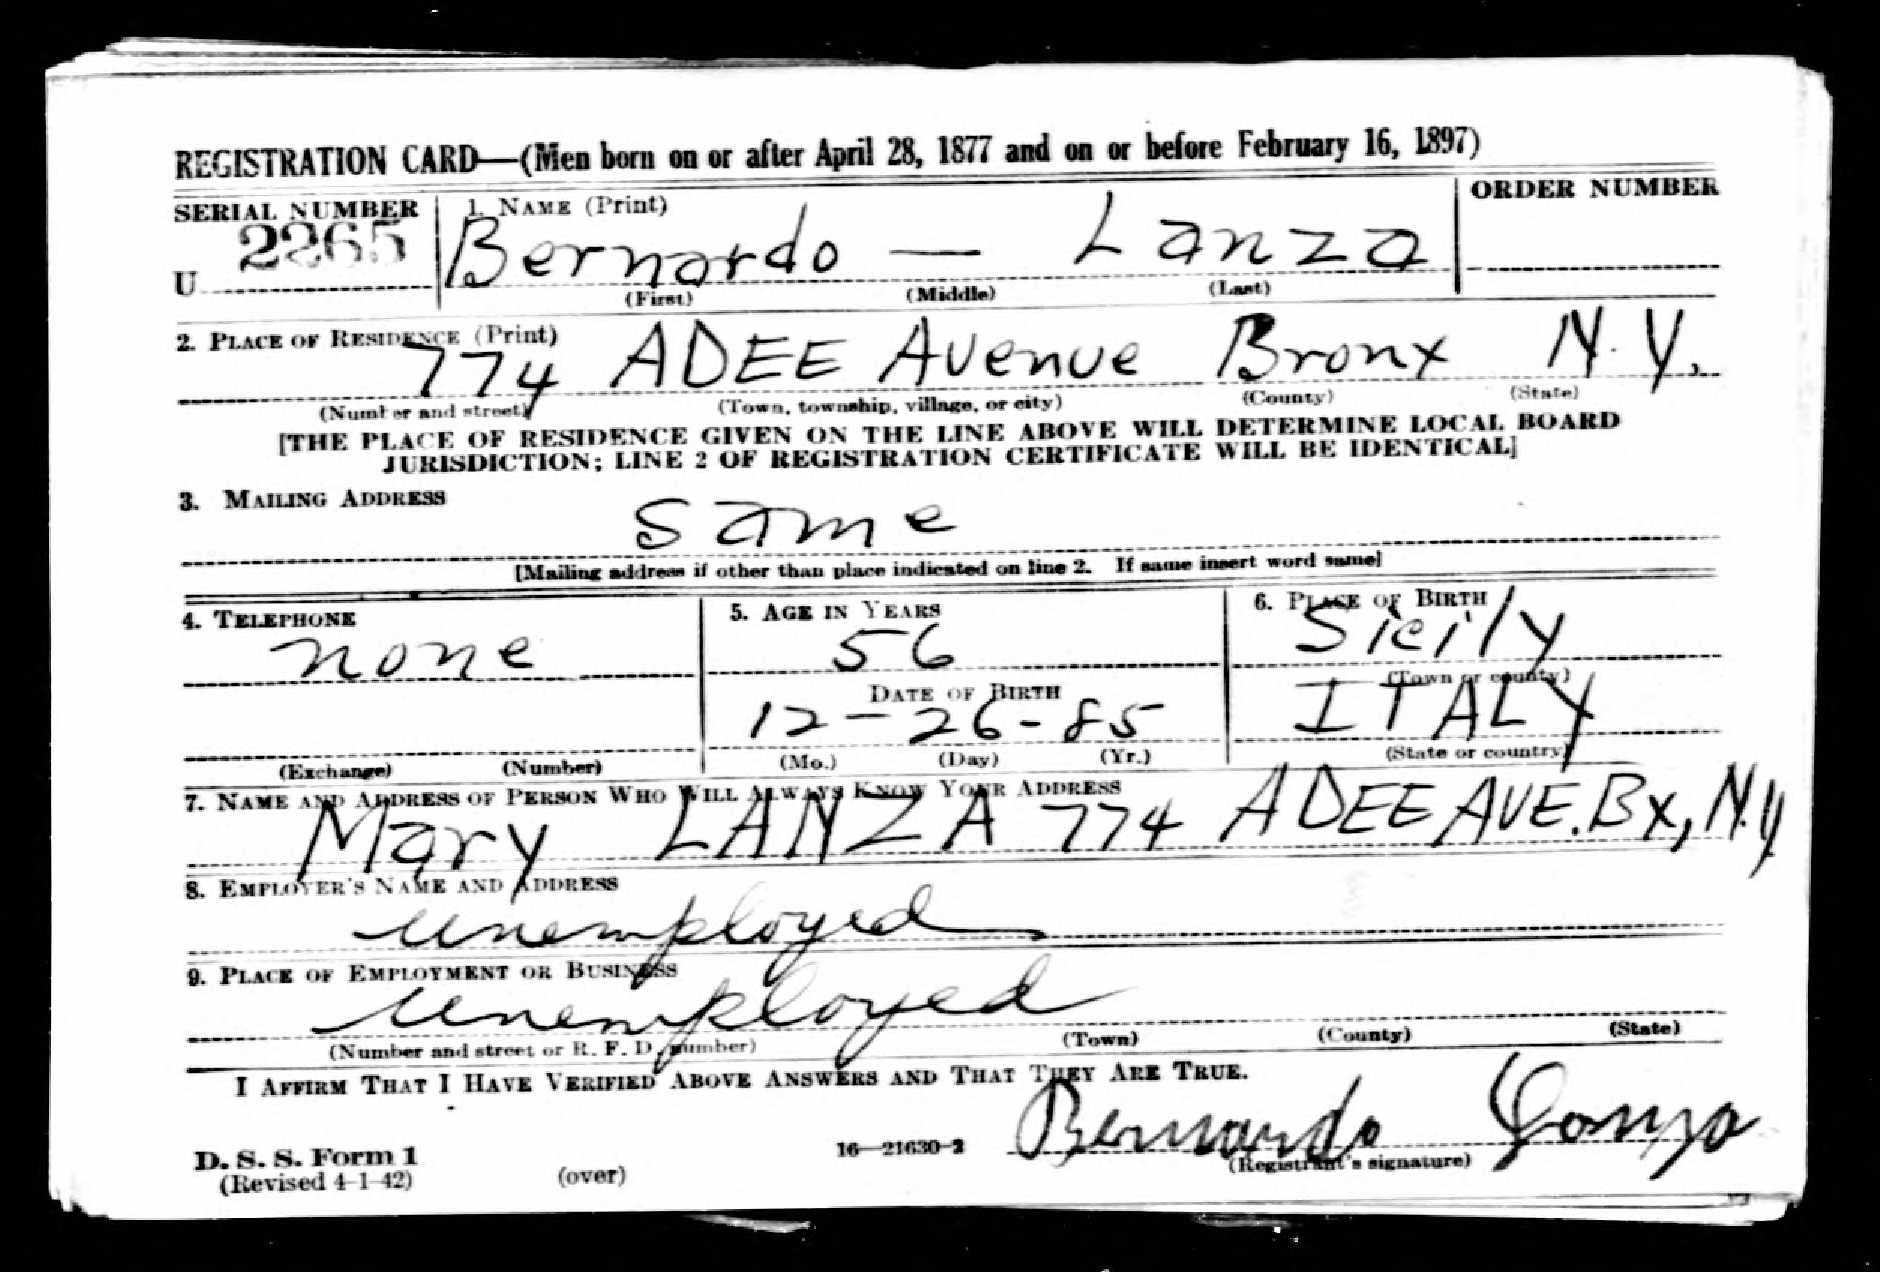 REGISTRATION CARD—(Men born on or after April 28, 1877 and on or before February 16, 1897)
SERIAL NUMBER
1. NAME (Print)
ORDER NUMBER
U 2265
Bernardo — Lanza
(First) (Middle) (Last)
2. PLACE OF RESIDENCE (Print)
774 ADEE Avenue Bronx N.Y.
(Number and street) (Town, township, village, or city) (County) (State)
[THE PLACE OF RESIDENCE GIVEN ON THE LINE ABOVE WILL DETERMINE LOCAL BOARD
JURISDICTION; LINE 2 OF REGISTRATION CERTIFICATE WILL BE IDENTICAL]
3. MAILING ADDRESS
same
[Mailing address if other than place indicated on line 2. If same insert word same]
4. TELEPHONE
none
(Exchange) (Number)
5. AGE IN YEARS
56
DATE OF BIRTH
12-26-85
(Mo.) (Day) (Yr.)
6. PLACE OF BIRTH
Sicily
(Town or county)
ITALY
(State or country)
7. NAME AND ADDRESS OF PERSON WHO WILL ALWAYS KNOW YOUR ADDRESS
Mary LANZA 774 ADEE AVE. Bx, N.Y
8. EMPLOYER'S NAME AND ADDRESS
unemployed
9. PLACE OF EMPLOYMENT OR BUSINESS
unemployed
(Number and street or R. F. D. number) (Town) (County) (State)
I AFFIRM THAT I HAVE VERIFIED ABOVE ANSWERS AND THAT THEY ARE TRUE.
Bernardo Lanza
D. S. S. Form 1
(Revised 4-1-42)
(over)
16—21630-2
(Registrant's signature)